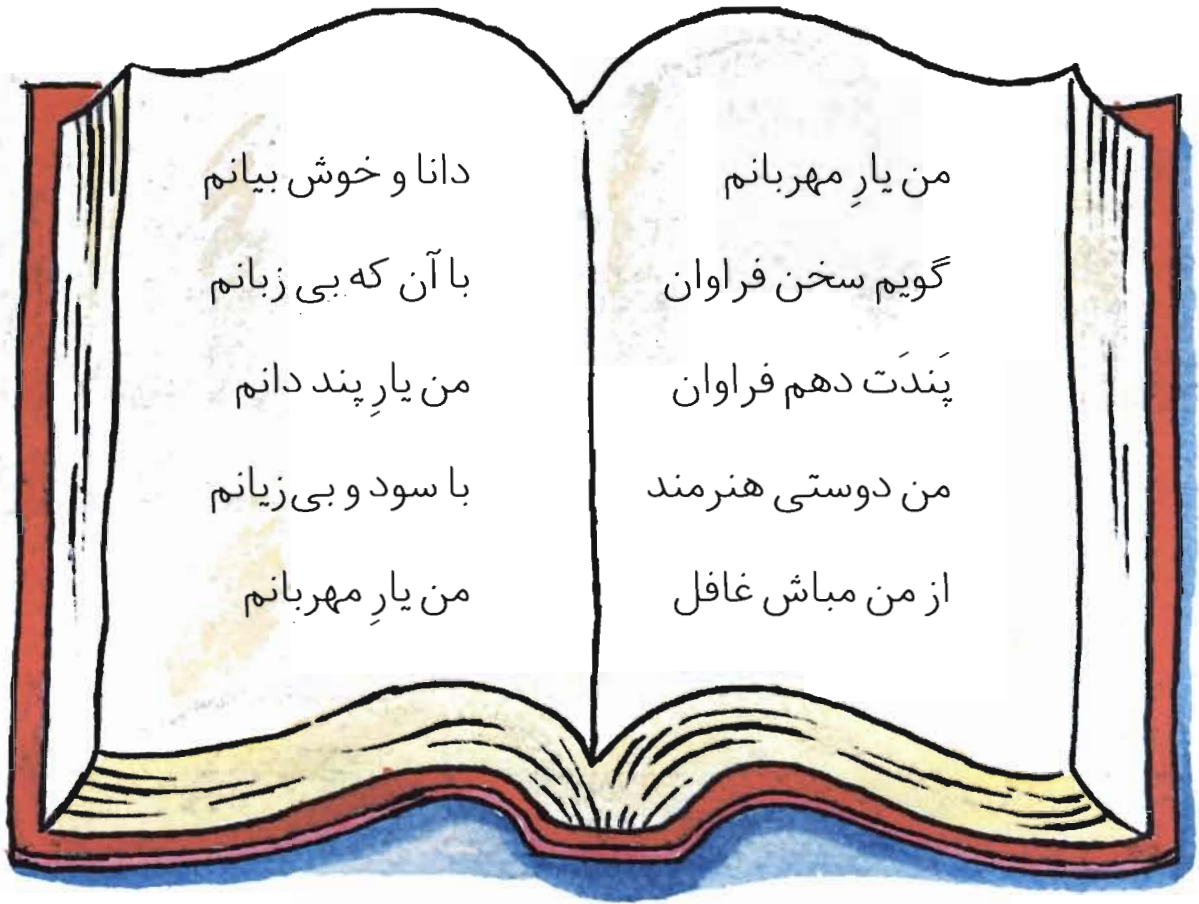 من یارِ مهربانم دانا و خوش بیانم
گویم سخن فراوان با آن که بی زبانم
پَندَت دهم فراوان من یارِ پند دانم
من دوستی هنرمند با سود و بی‌زیانم
از من مباش غافل من یارِ مهربانم